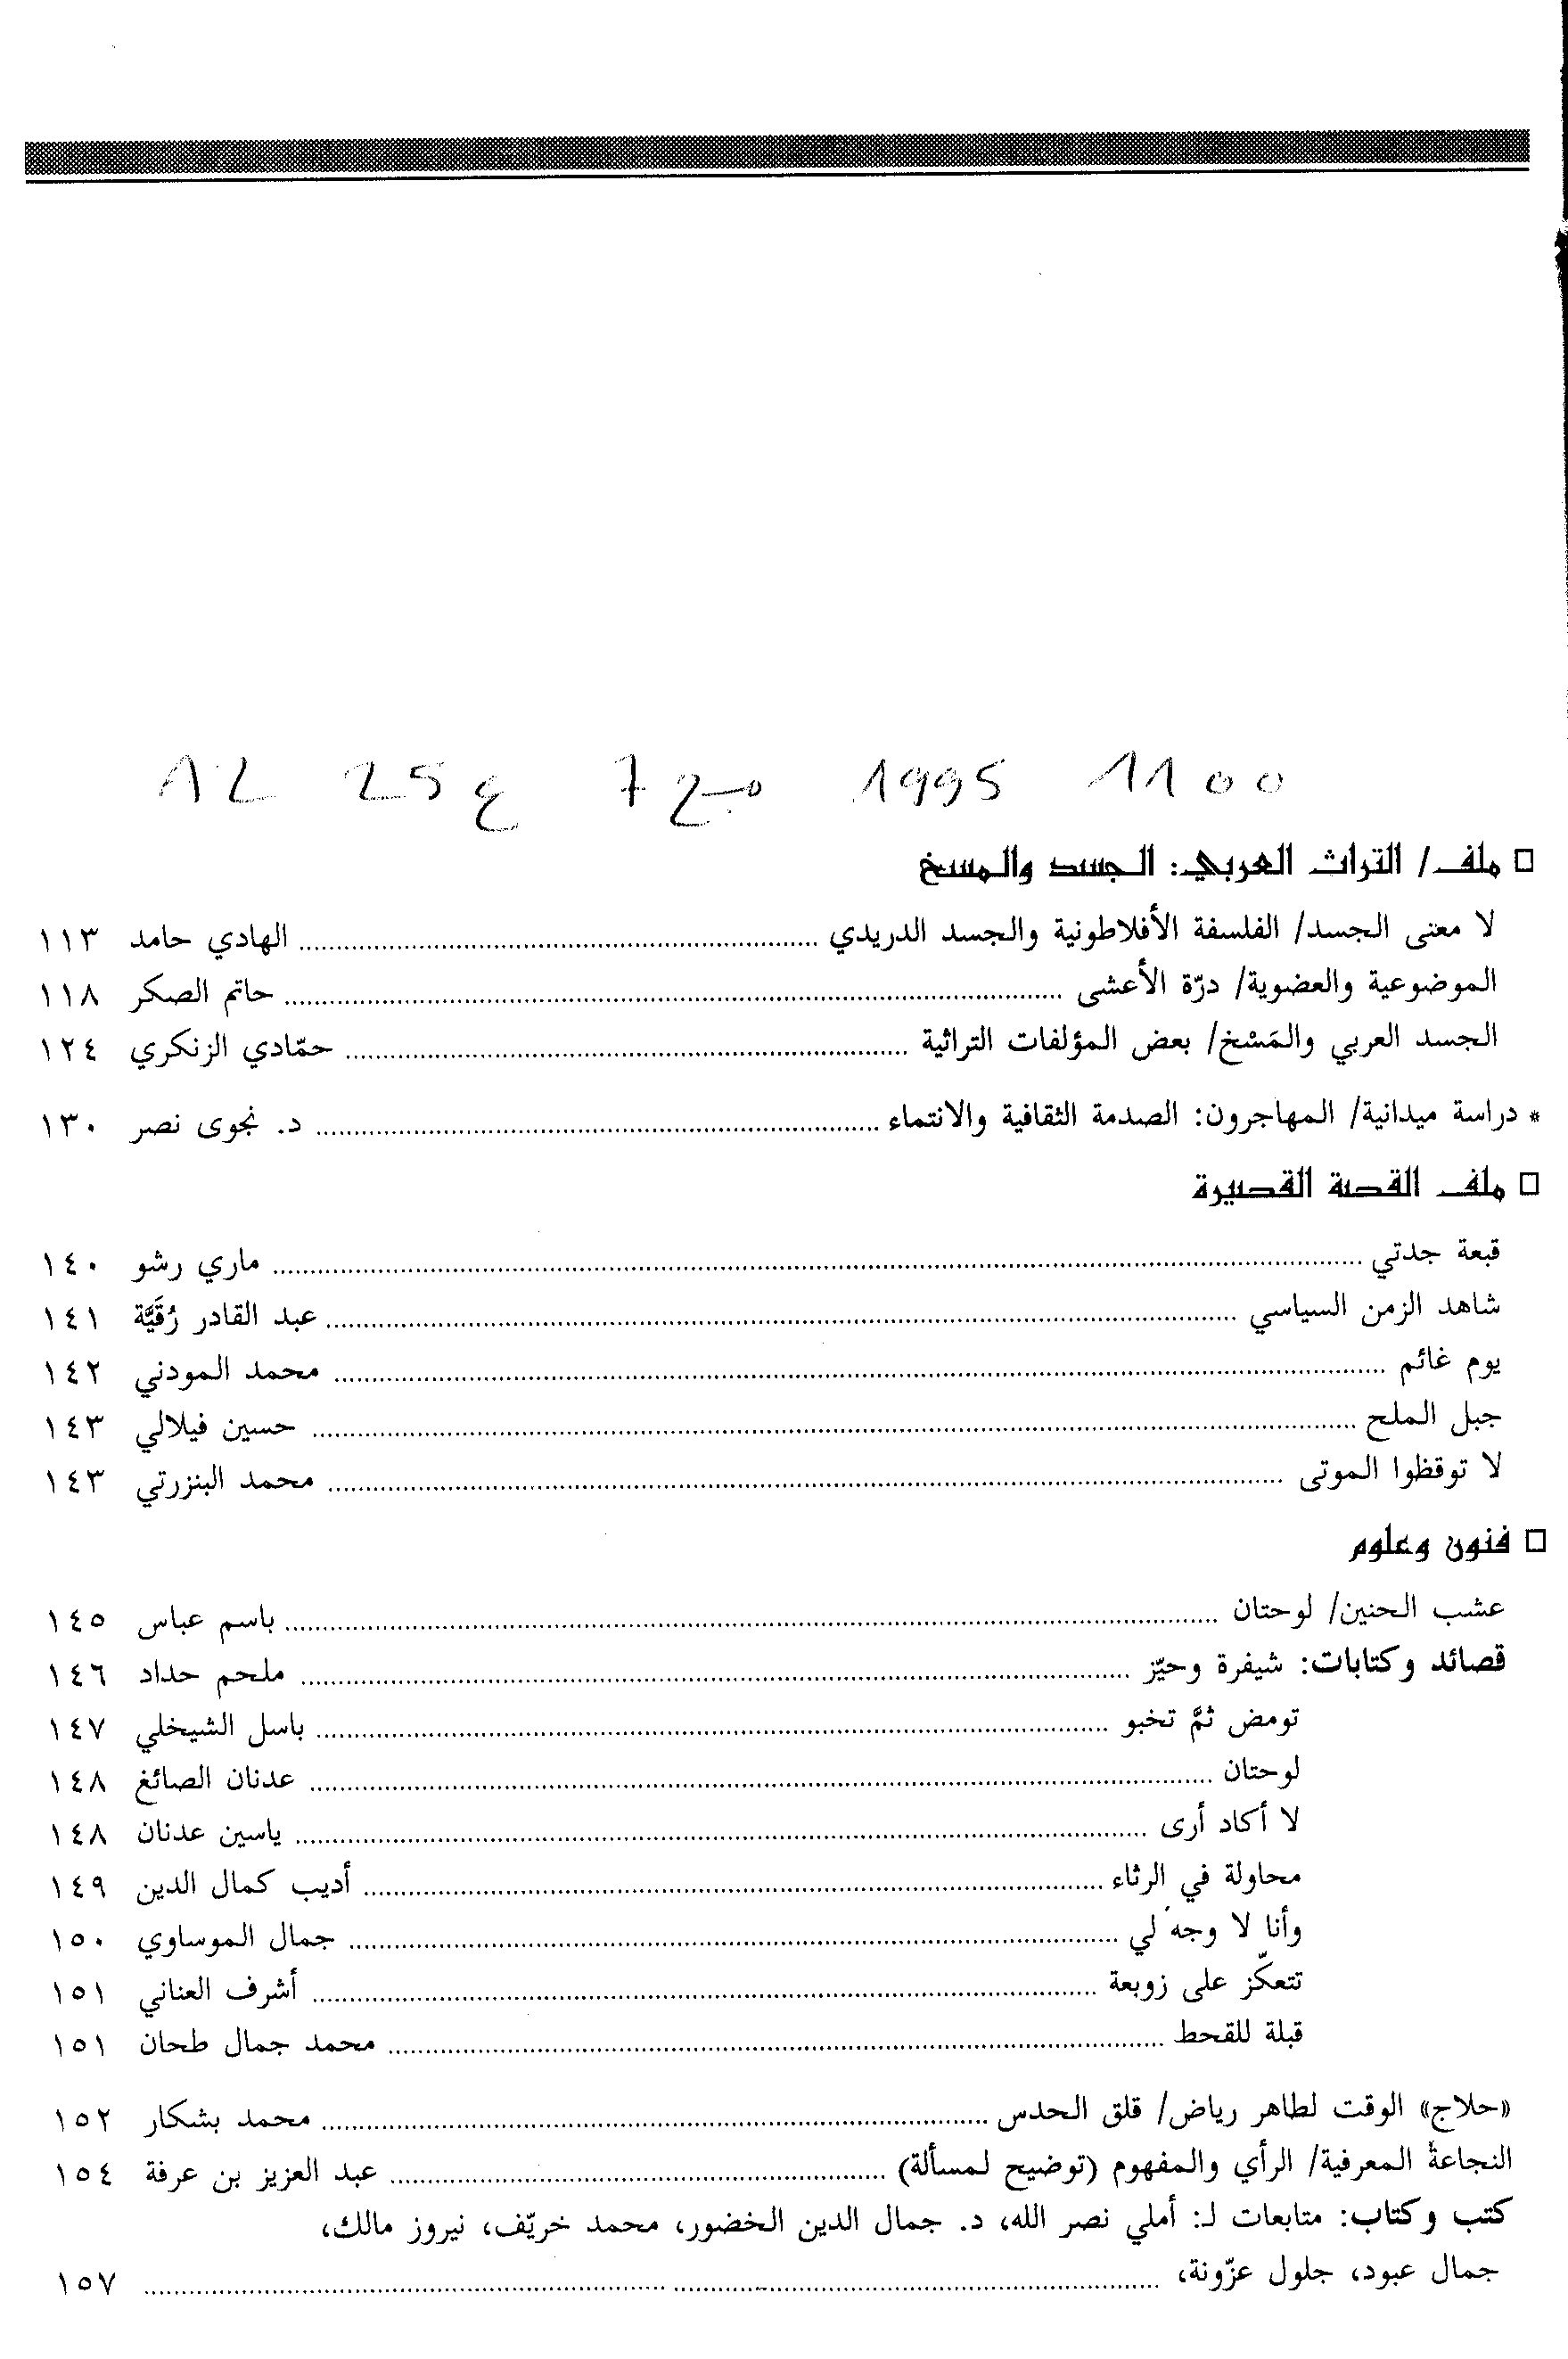 12 25 ع 7 ج 1995 1100
□ ملف/ التراث العربي: الجسد والمسخ
لا معنى الجسد/ الفلسفة الأفلاطونية والجسد الدريدي ........ الهادي حامد ١١٣
الموضوعية والعضوية/ درّة الأعشى ........ حاتم الصكر ١١٨
الجسد العربي والمَسْخ/ بعض المؤلفات التراثية ........ حمّادي الزنكري ١٢٤
* دراسة ميدانية/ المهاجرون: الصدمة الثقافية والانتماء ........ د. نجوى نصر ١٣٠
□ ملف القصة القصيرة
قبعة جدتي ........ ماري رشو ١٤٠
شاهد الزمن السياسي ........ عبد القادر رُقَيَّة ١٤١
يوم غائم ........ محمد المودني ١٤٢
جبل الملح ........ حسين فيلالي ١٤٣
لا توقظوا الموتى ........ محمد البنزرتي ١٤٣
□ فنون وعلوم
عشب الحنين/ لوحتان ........ باسم عباس ١٤٥
قصائد وكتابات: شيفرة وحيّز ........ ملحم حداد ١٤٦
تومض ثمَّ تخبو ........ باسل الشيخلي ١٤٧
لوحتان ........ عدنان الصائغ ١٤٨
لا أكاد أرى ........ ياسين عدنان ١٤٨
محاولة في الرثاء ........ أديب كمال الدين ١٤٩
وأنا لا وجه لي ........ جمال الموساوي ١٥٠
تتعكّز على زوبعة ........ أشرف العناني ١٥١
قبلة للقحط ........ محمد جمال طحان ١٥١
«حلاج» الوقت لطاهر رياض/ قلق الحدس ........ محمد بشكار ١٥٢
النجاعة المعرفية/ الرأي والمفهوم (توضيح لمسألة) ........ عبد العزيز بن عرفة ١٥٤
كتب وكتاب: متابعات لـ: أملي نصر الله، د. جمال الدين الخضور، محمد خريّف، نيروز مالك،
جمال عبود، جلول عزّونة، ........ ١٥٧